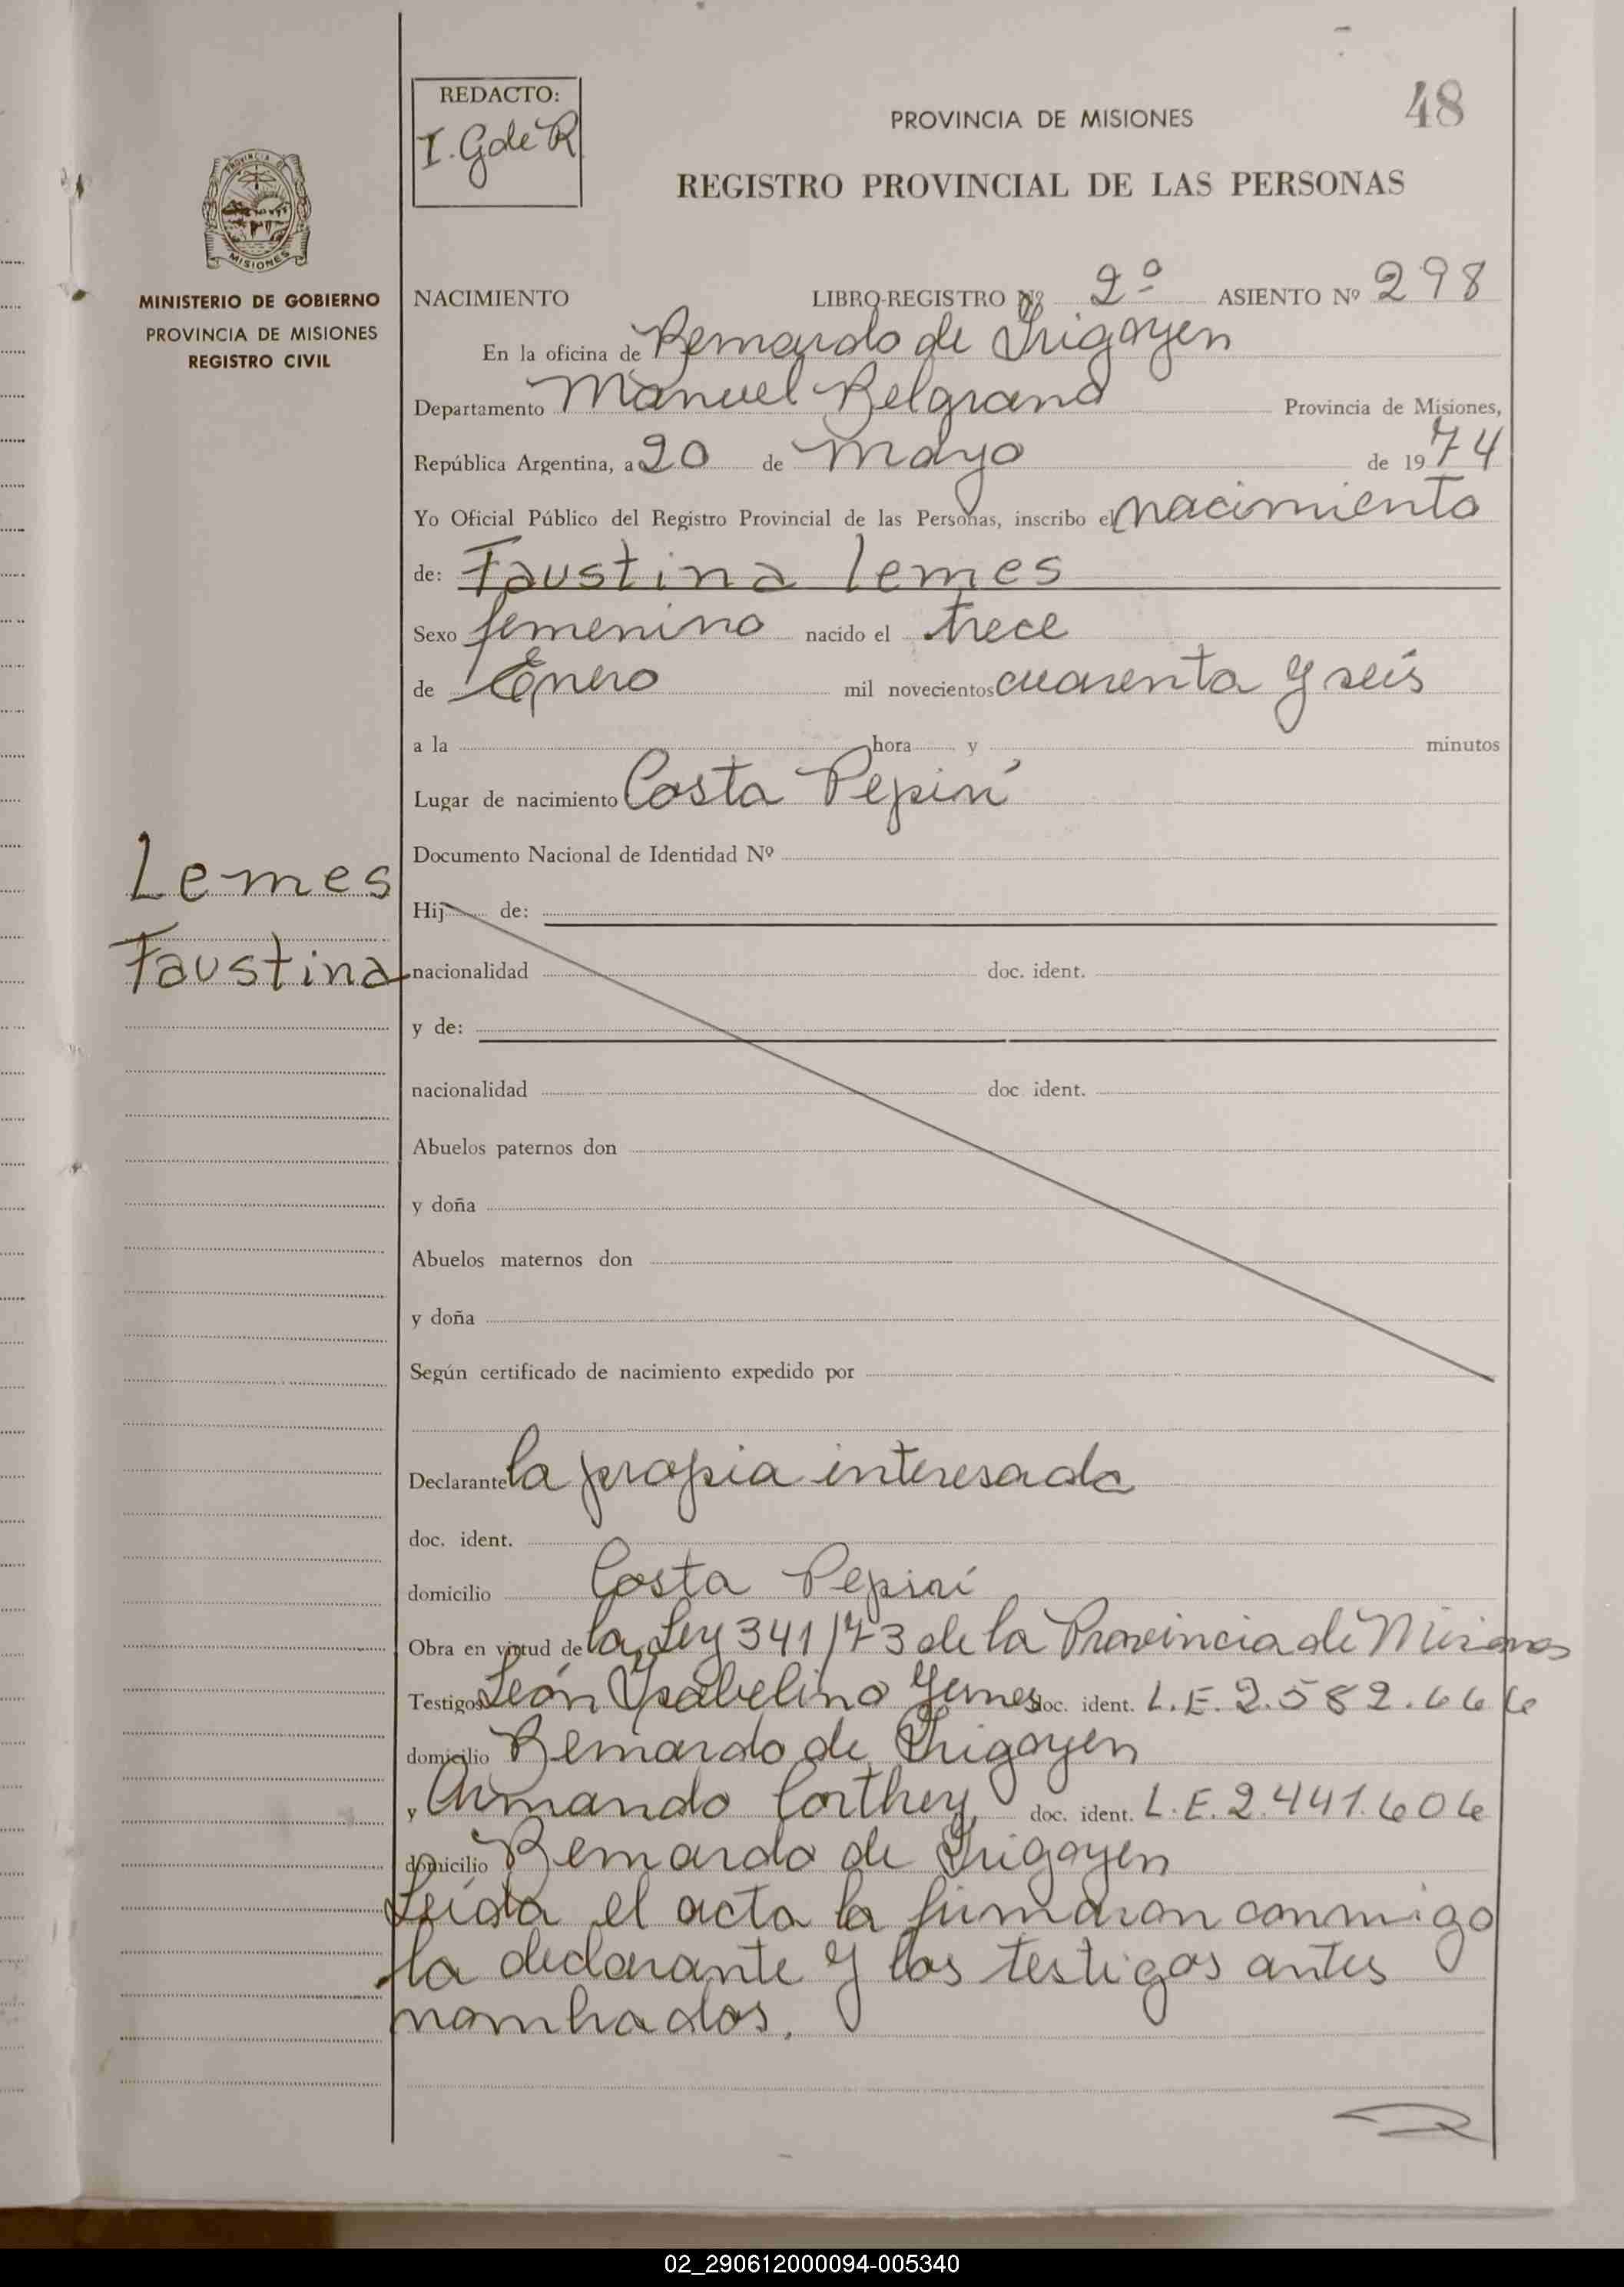 REDACTO:
I. G de R
48
PROVINCIA DE MISIONES
REGISTRO PROVINCIAL DE LAS PERSONAS
PROVINCIA DE
MISIONES
MINISTERIO DE GOBIERNO
PROVINCIA DE MISIONES
REGISTRO CIVIL
NACIMIENTO LIBRO-REGISTRO Nº 2º ASIENTO Nº 298
En la oficina de Bernardo de Irigoyen
Departamento Manuel Belgrano Provincia de Misiones,
República Argentina, a 20 de mayo de 1974
Yo Oficial Público del Registro Provincial de las Personas, inscribo el nacimiento
de: Faustina Lemes
Sexo femenino nacido el trece
de Enero mil novecientos cuarenta y seis
a la hora y minutos
Lugar de nacimiento Costa Pepirí
Documento Nacional de Identidad Nº
Lemes
Faustina
Hij de:
nacionalidad doc. ident.
y de:
nacionalidad doc ident.
Abuelos paternos don
y doña
Abuelos maternos don
y doña
Según certificado de nacimiento expedido por
Declarante la propia interesada
doc. ident.
domicilio Costa Pepirí
Obra en virtud de la Ley 341/73 de la Provincia de Misiones
Testigos León Ysabelino Yemes doc. ident. L.E. 2.582.666
domicilio Bernardo de Irigoyen
y Armando Corthey doc. ident. L.E. 2.441.606
domicilio Bernardo de Irigoyen
Leída el acta la firmaron conmigo
la declarante y los testigos antes
nombrados.
02_290612000094-005340